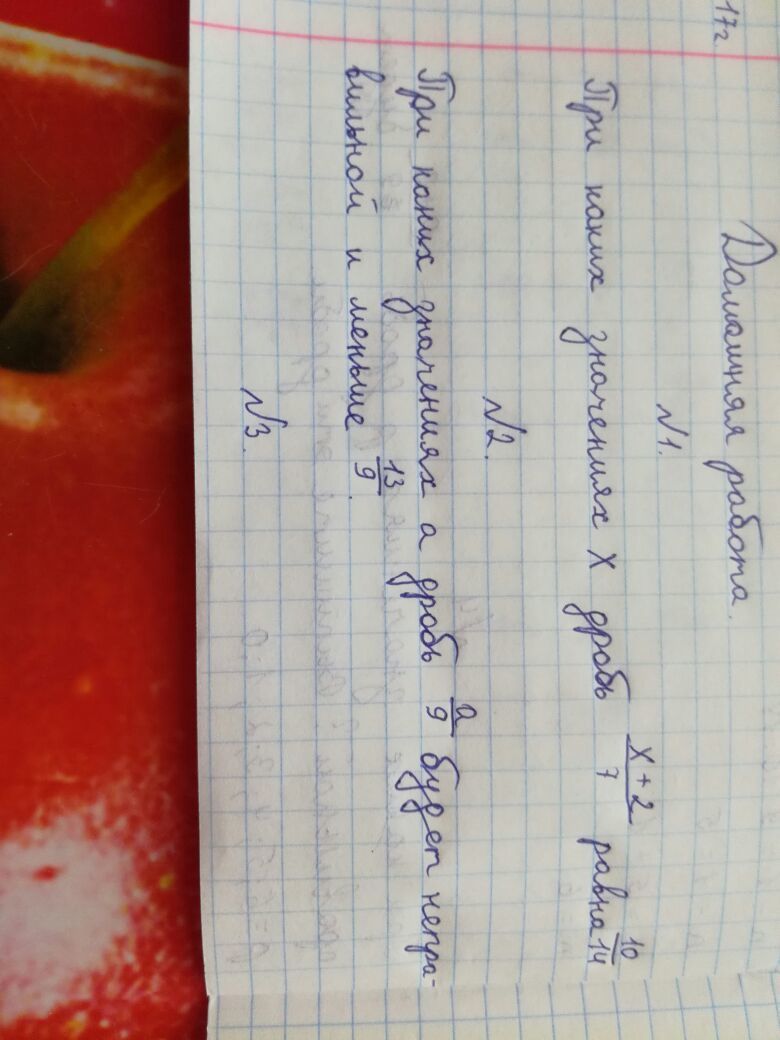 17г
Домашняя работа.
№1.
При каких значениях х дробь x+2/7 равна 10/14
№2.
При каких значениях а дробь a/9 будет непра-
вильной и меньше 13/9.
№3.